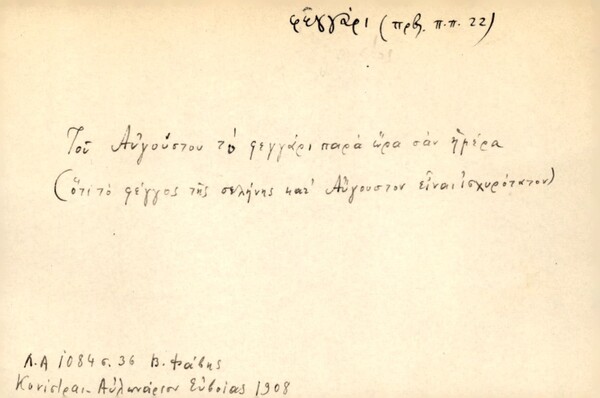 φεγγάρι (πρβ. π.π. 22)
Τοῦ Αὐγούστου τὸ φεγγάρι παρὰ ὥρα σὰν ἡμέρα
(ὅτι τὸ φέγγος τῆς σελήνης κατ' Αὔγουστον εἶναι ἰσχυρότατον)
Λ.Α 1084 σ. 36 Β. Φάβης
Κονίστραι - Αὐλωνάριον Εὐβοίας 1908